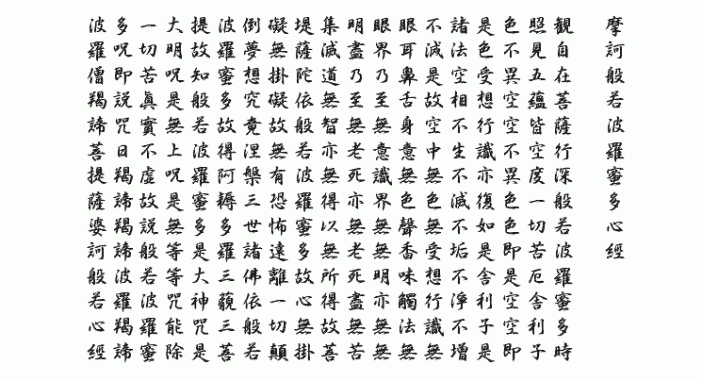 摩訶般若波羅蜜多心經
觀自在菩薩行深般若波羅蜜多時
照見五蘊皆空度一切苦厄舍利子
色不異空空不異色色即是空空即
是色受想行識亦復如是舍利子是
諸法空相不生不滅不垢不淨不增
不滅是故空中無色無受想行識無
眼耳鼻舌身意無色聲香味觸法無
眼界乃至無意識界無無明亦無無
明盡乃至無老死亦無老死盡無苦
集滅道無智亦無得以無所得故菩
堤薩陀依般若波羅蜜多故心無掛
礙無掛礙故無有恐怖遠離一切顛
倒夢想究竟涅槃三世諸佛依般若
波羅蜜多故得阿耨多羅三藐三菩
提故知般若波羅蜜多是大神咒是
大明呪是無上呪是無等等咒能除
一切苦眞實不虛故說般若波羅蜜
多呪即説咒曰羯諦羯諦波羅羯諦
波羅僧羯諦菩提薩婆訶般若心經